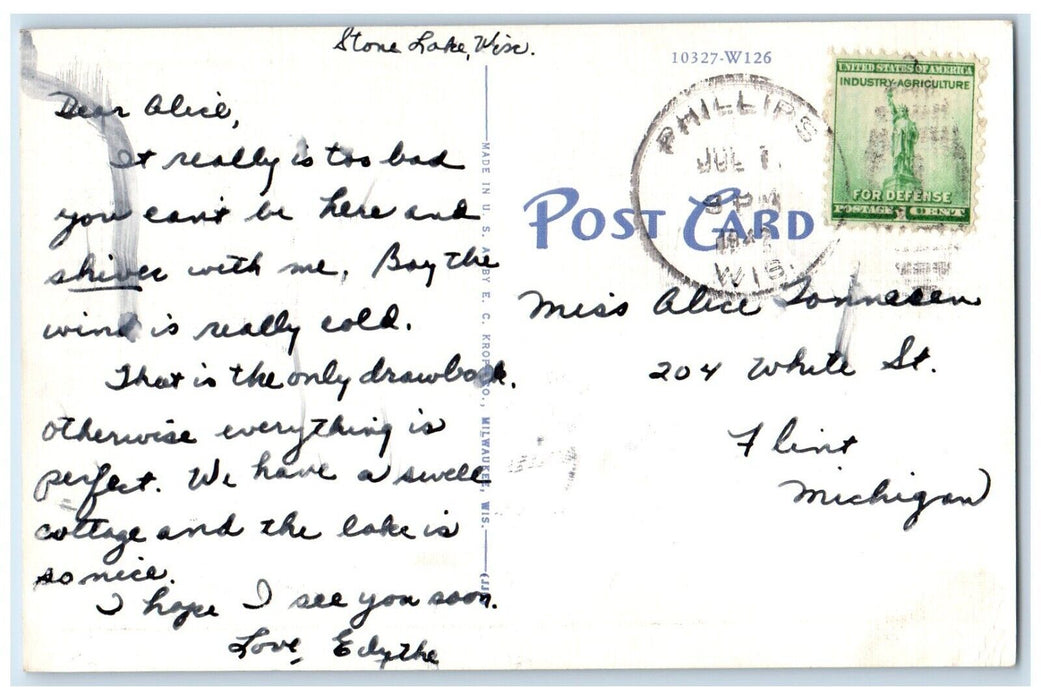 Stone Lake, Wisc.
Dear Alice,
It really is too bad
you can't be here and
shiver with me. Boy the
wind is really cold.
That is the only drawback.
otherwise everything is
perfect. We have a swell
cottage and the lake is
so nice.
I hope I see you soon.
Love, Edythe
MADE IN U. S. A. BY E. C. KROPP CO., MILWAUKEE, WIS.
10327-W126
POST CARD
PHILLIPS
PM
WIS.
UNITED STATES OF AMERICA
INDUSTRY-AGRICULTURE
FOR DEFENSE
POSTAGE 1 CENT
Miss Alice
204 White St.
Flint
Michigan